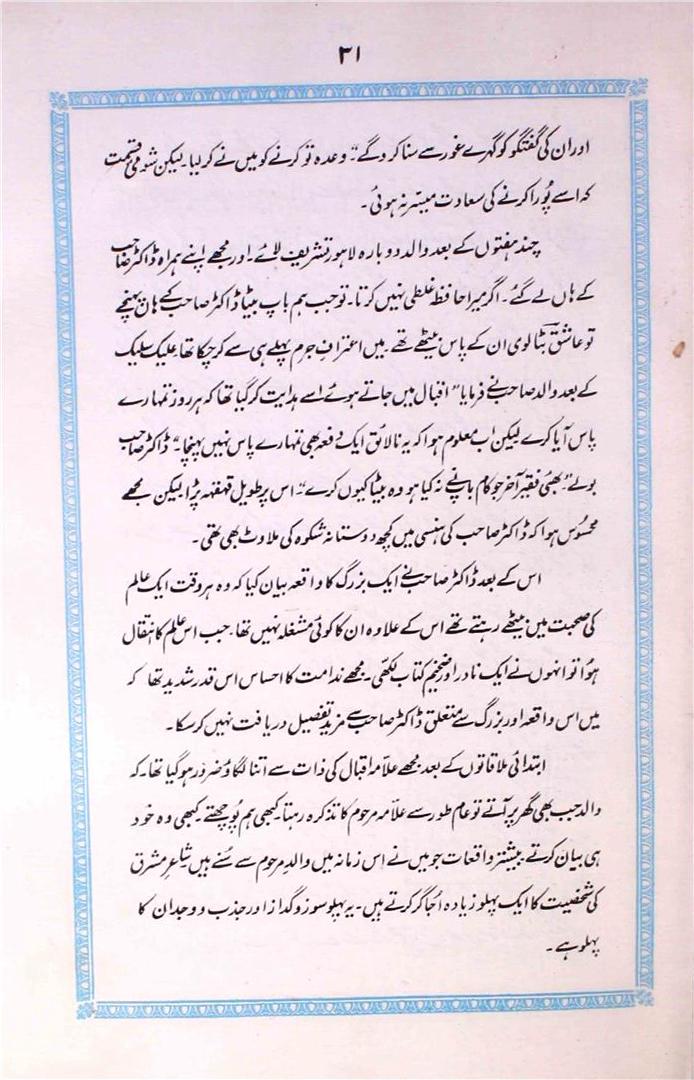 ۳۱
اور ان کی گفتگو کو گہرے غور سے سنا کرو گے"۔ وعدہ تو کرنے کو میں نے کر لیا۔ لیکن شومیٔ قسمت
کہ اسے پُورا کرنے کی سعادت میسّر نہ ہوئی۔
چند ہفتوں کے بعد والد دوبارہ لاہور تشریف لائے۔ اور مجھے اپنے ہمراہ ڈاکٹر صاحب
کے ہاں لے گئے۔ اگر میرا حافظہ غلطی نہیں کرتا۔ تو جب ہم باپ بیٹا ڈاکٹر صاحب کے ہاں پہنچے
تو عاشق بٹالوی ان کے پاس بیٹھے تھے۔ میں اعترافِ جرم پہلے ہی سے کر چکا تھا۔ علیک سلیک
کے بعد والد صاحب نے فرمایا "اقبال میں جاتے ہوئے اسے ہدایت کر گیا تھا کہ ہر روز تمہارے
پاس آیا کرے لیکن اب معلوم ہوا کہ یہ نالائق ایک دفعہ بھی تمہارے پاس نہیں پہنچا"۔ ڈاکٹر صاحب
بولے "بھئی فقیر آخر جو کام باپ نے نہ کیا ہو وہ بیٹا کیوں کرے"۔ اس پر طویل قہقہہ پڑا لیکن مجھے
محسُوس ہوا کہ ڈاکٹر صاحب کی ہنسی میں کچھ دوستانہ شکوہ کی ملاوٹ بھی تھی۔
اس کے بعد ڈاکٹر صاحب نے ایک بزرگ کا واقعہ بیان کیا کہ وہ ہر وقت ایک عالم
کی صحبت میں بیٹھے رہتے تھے اس کے علاوہ ان کا کوئی مشغلہ نہیں تھا۔ جب اس عالم کا انتقال
ہُوا تو انہوں نے ایک نادر اور ضخیم کتاب لکھی۔ مجھے ندامت کا احساس اس قدر شدید تھا کہ
میں اس واقعہ اور بزرگ سے متعلق ڈاکٹر صاحب سے مزید تفصیل دریافت نہیں کر سکا۔
ابتدائی ملاقاتوں کے بعد مجھے علامہ اقبال کی ذات سے اتنا لگاؤ ضرور ہو گیا تھا۔ کہ
والد جب بھی گھر پر آتے تو عام طور سے علامہ مرحوم کا تذکرہ رہتا۔ کبھی ہم پُوچھتے کبھی وہ خود
ہی بیان کرتے۔ بیشتر واقعات جو میں نے اس زمانہ میں والدِ مرحوم سے سُنے ہیں شاعرِ مشرق
کی شخصیت کا ایک پہلو زیادہ اُجاگر کرتے ہیں۔ یہ پہلو سوز و گداز اور جذب و وجدان کا
پہلو ہے۔